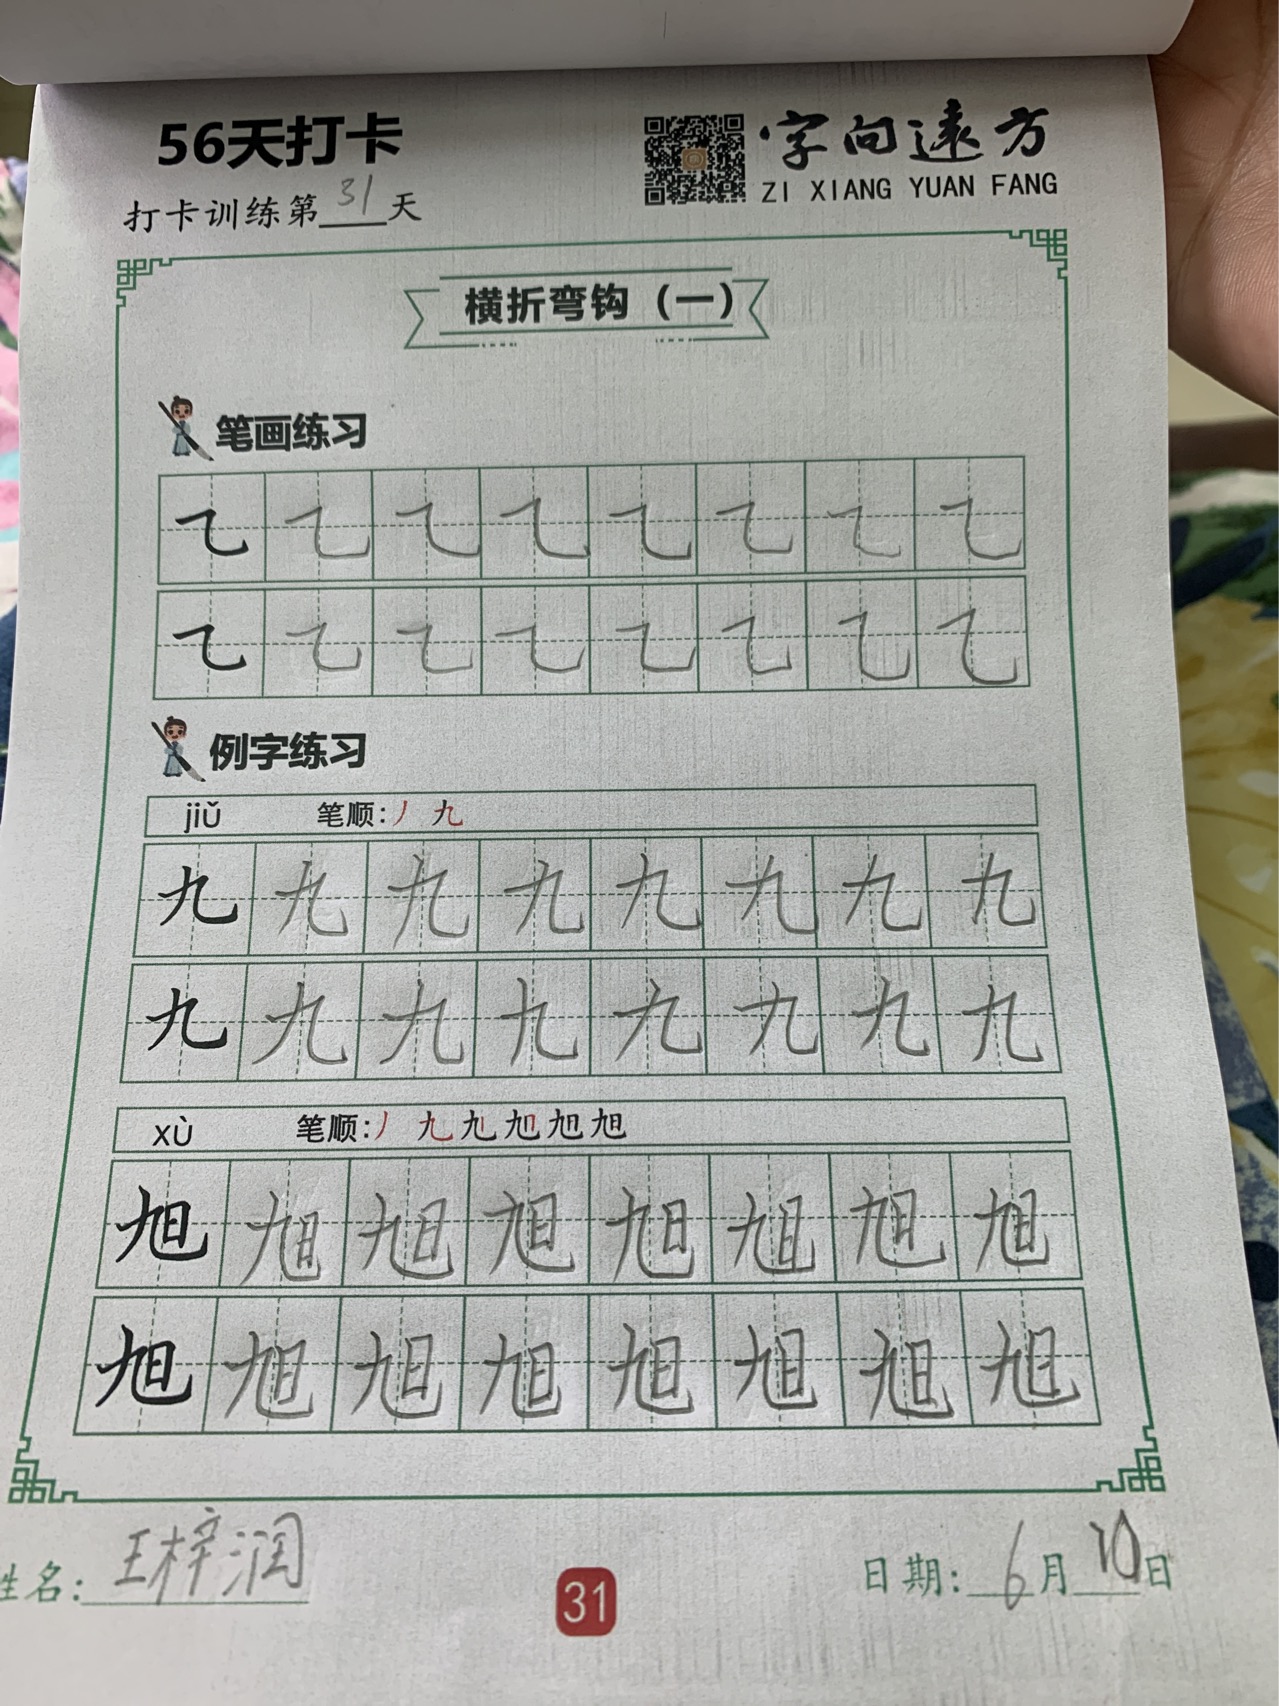 56天打卡
字向远方
ZI XIANG YUAN FANG
打卡训练第31天
横折弯钩（一）
笔画练习
乁 乁 乁 乁 乁 乁 乁 乁
乁 乁 乁 乁 乁 乁 乁 乁
例字练习
jiǔ 笔顺：丿 九
九 九 九 九 九 九 九 九
九 九 九 九 九 九 九 九
xù 笔顺：丿 九 九 旭 旭 旭
旭 旭 旭 旭 旭 旭 旭 旭
旭 旭 旭 旭 旭 旭 旭 旭
姓名：王梓润
31
日期：6月10日